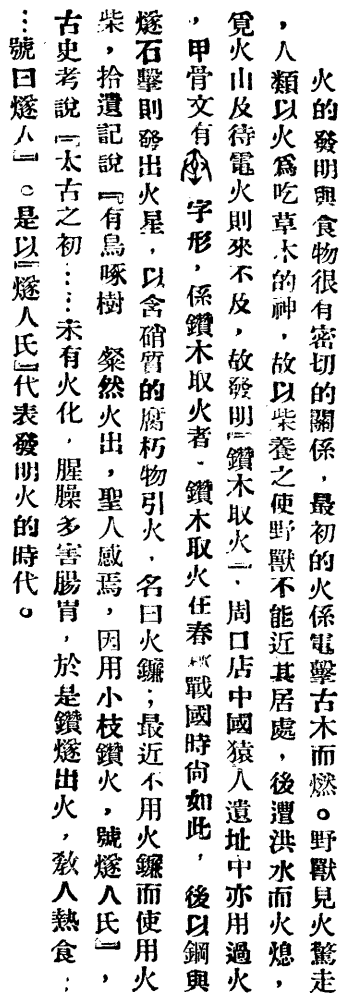 火的發明與食物很有密切的關係，最初的火係電擊古木而燃。野獸見火驚走
，人類以火爲吃草木的神，故以柴養之使野獸不能近其居處，後遭洪水而火熄，
覓火山及待電火則來不及，故發明『鑽木取火』，周口店中國猿人遺址中亦用過火
，甲骨文有 字形，係鑽木取火者，鑽木取火在春秋戰國時尙如此，後以鋼與
燧石擊則發出火星，以含硝質的腐朽物引火，名曰火鐮；最近不用火鐮而使用火
柴，拾遺記說『有鳥啄樹 粲然火出，聖人感焉，因用小枝鑽火，號燧人氏』，
古史考說『太古之初……未有火化，腥臊多害腸胃，於是鑽燧出火，敎人熱食；
…號曰燧人』。是以『燧人氏』代表發明火的時代。